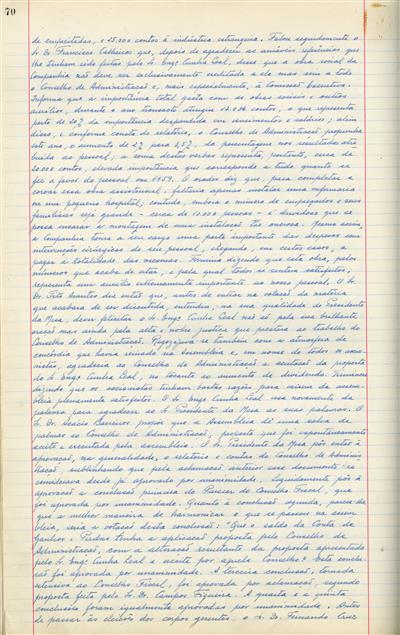 70
de empreitadas, e 25.000 contos à indústria estrangeira. Falou seguidamente o
Sr. Dr. Francisco Calheiros que, depois de agradecer as amáveis referências que
lhe tinham sido feitas pelo Sr. Engº Cunha Leal, disse que a obra social da
Companhia não deve ser exclusivamente creditada a ela mas sem a todo
o Conselho de Administração e, mais especialmente, à Comissão Executiva.
Informa que a importância total gasta com as obras sociais e muitos
auxílios, durante o ano transacto atingiu 17.034 contos, o que representa
perto de 20% da importância despendida em vencimentos e salários; além
disso, e conforme consta do relatório, o Conselho de Administração propunha
este ano, o aumento de 2% para 2,5% da percentagem nos resultados atri-
buída ao pessoal; a soma destas verbas representa, portanto, cerca de
20.000 contos, elevada importância que corresponde a tudo quanto se
fez a favor do pessoal em 1959. O orador diz que, para completar e
coroar essa obra assistencial, faltaria apenas instalar uma enfermaria
ou um pequeno hospital; contudo, embora o número de empregados e seus
familiares seja grande - cerca de 10.000 pessoas - é duvidoso que se
possa encarar a montagem de uma instalação tão onerosa. Mesmo assim,
a Companhia toma a seu cargo uma parte importante das despesas com
intervenções cirúrgicas do seu pessoal, chegando, em certos casos, a
pagar a totalidade das mesmas. Termina dizendo que esta obra, pelos
números que acaba de citar, e pela qual todos se sentem satisfeitos,
representa um auxílio extremamente importante ao nosso pessoal. O Sr.
Dr. Tito Arantes diz então que, antes de entrar na votação da matéria
que acabara de ser discutida, entendia, na sua qualidade de Presidente
da Mesa, dever felicitar o Sr. Engº Cunha Leal não só pela sua brilhante
oração mas ainda pela alta e nobre justiça que prestara ao trabalho do
Conselho de Administração. Regozijava-se também com a atmosfera de
concórdia que havia reinado na Assembleia e, em nome de todos os accio-
nistas, agradecia ao Conselho de Administração a aceitação da proposta
do Sr. Engº Cunha Leal, no tocante ao aumento do dividendo. Terminou
dizendo que os accionistas tinham bastas razões para saírem da assem-
bleia plenamente satisfeitos. O Sr. Engº Cunha Leal usa novamente da
palavra para agradecer ao Sr. Presidente da Mesa as suas palavras. O
Sr. Dr. Acácio Barreiro propôs que a Assembleia dê uma salva de
palmas ao Conselho de Administração, proposta que foi espontaneamente
aceite e executada pela assembleia. O Sr. Presidente da Mesa pôs então à
aprovação, na generalidade, o relatório e contas do Conselho de Adminis-
tração, sublinhando que pela aclamação anterior esse documento se
considerava desde já aprovado por unanimidade. Seguidamente pôs à
aprovação a conclusão primeira do Parecer do Conselho Fiscal, que
foi aprovada por unanimidade. Quanto à conclusão segunda, parece-lhe
que a melhor maneira de harmonizar o que se passou na assem-
bleia, seria a votação desta conclusão: "Que o saldo da Conta de
Ganhos e Perdas tenha a aplicação proposta pelo Conselho de
Administração, com a alteração resultante da proposta apresentada
pelo Sr. Engº Cunha Leal e aceite por aquele Conselho". Esta conclu-
são foi aprovada por unanimidade. A terceira conclusão, tornada
extensiva ao Conselho Fiscal, foi aprovada por aclamação, segundo
proposta feita pelo Sr. Dr. Campos Figueira. A quarta e a quinta
conclusões foram igualmente aprovadas por unanimidade. Antes
de passar às eleições dos corpos gerentes, o Sr. Dr. Fernando Cruz